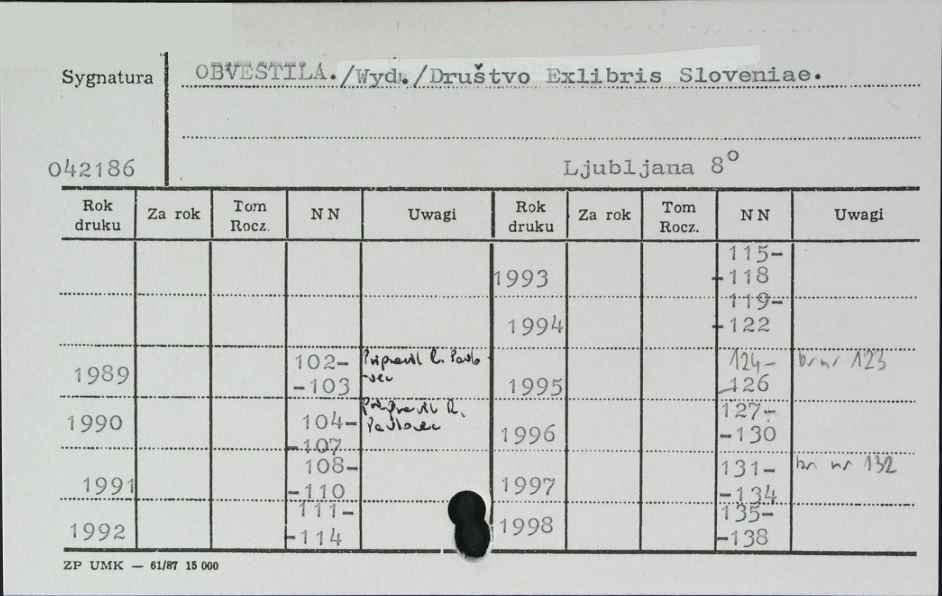 Sygnatura OBVESTILA./Wyd./Društvo Exlibris Sloveniae.
042186 Ljubljana 8°
Rok druku Za rok Tom Rocz. NN Uwagi Rok druku Za rok Tom Rocz. NN Uwagi
1993 115-
-118
1994 119-
-122
1989 102- Pripravil R. Pavlo
-103 -vec
1995 124- br nr 123
-126
1990 104- Pripravil R.
-107 Pavlovec
1996 127-
-130
1991 108-
-110
1997 131- br nr 132
-134
1992 111-
-114
1998 135-
-138
ZP UMK — 61/87 15 000